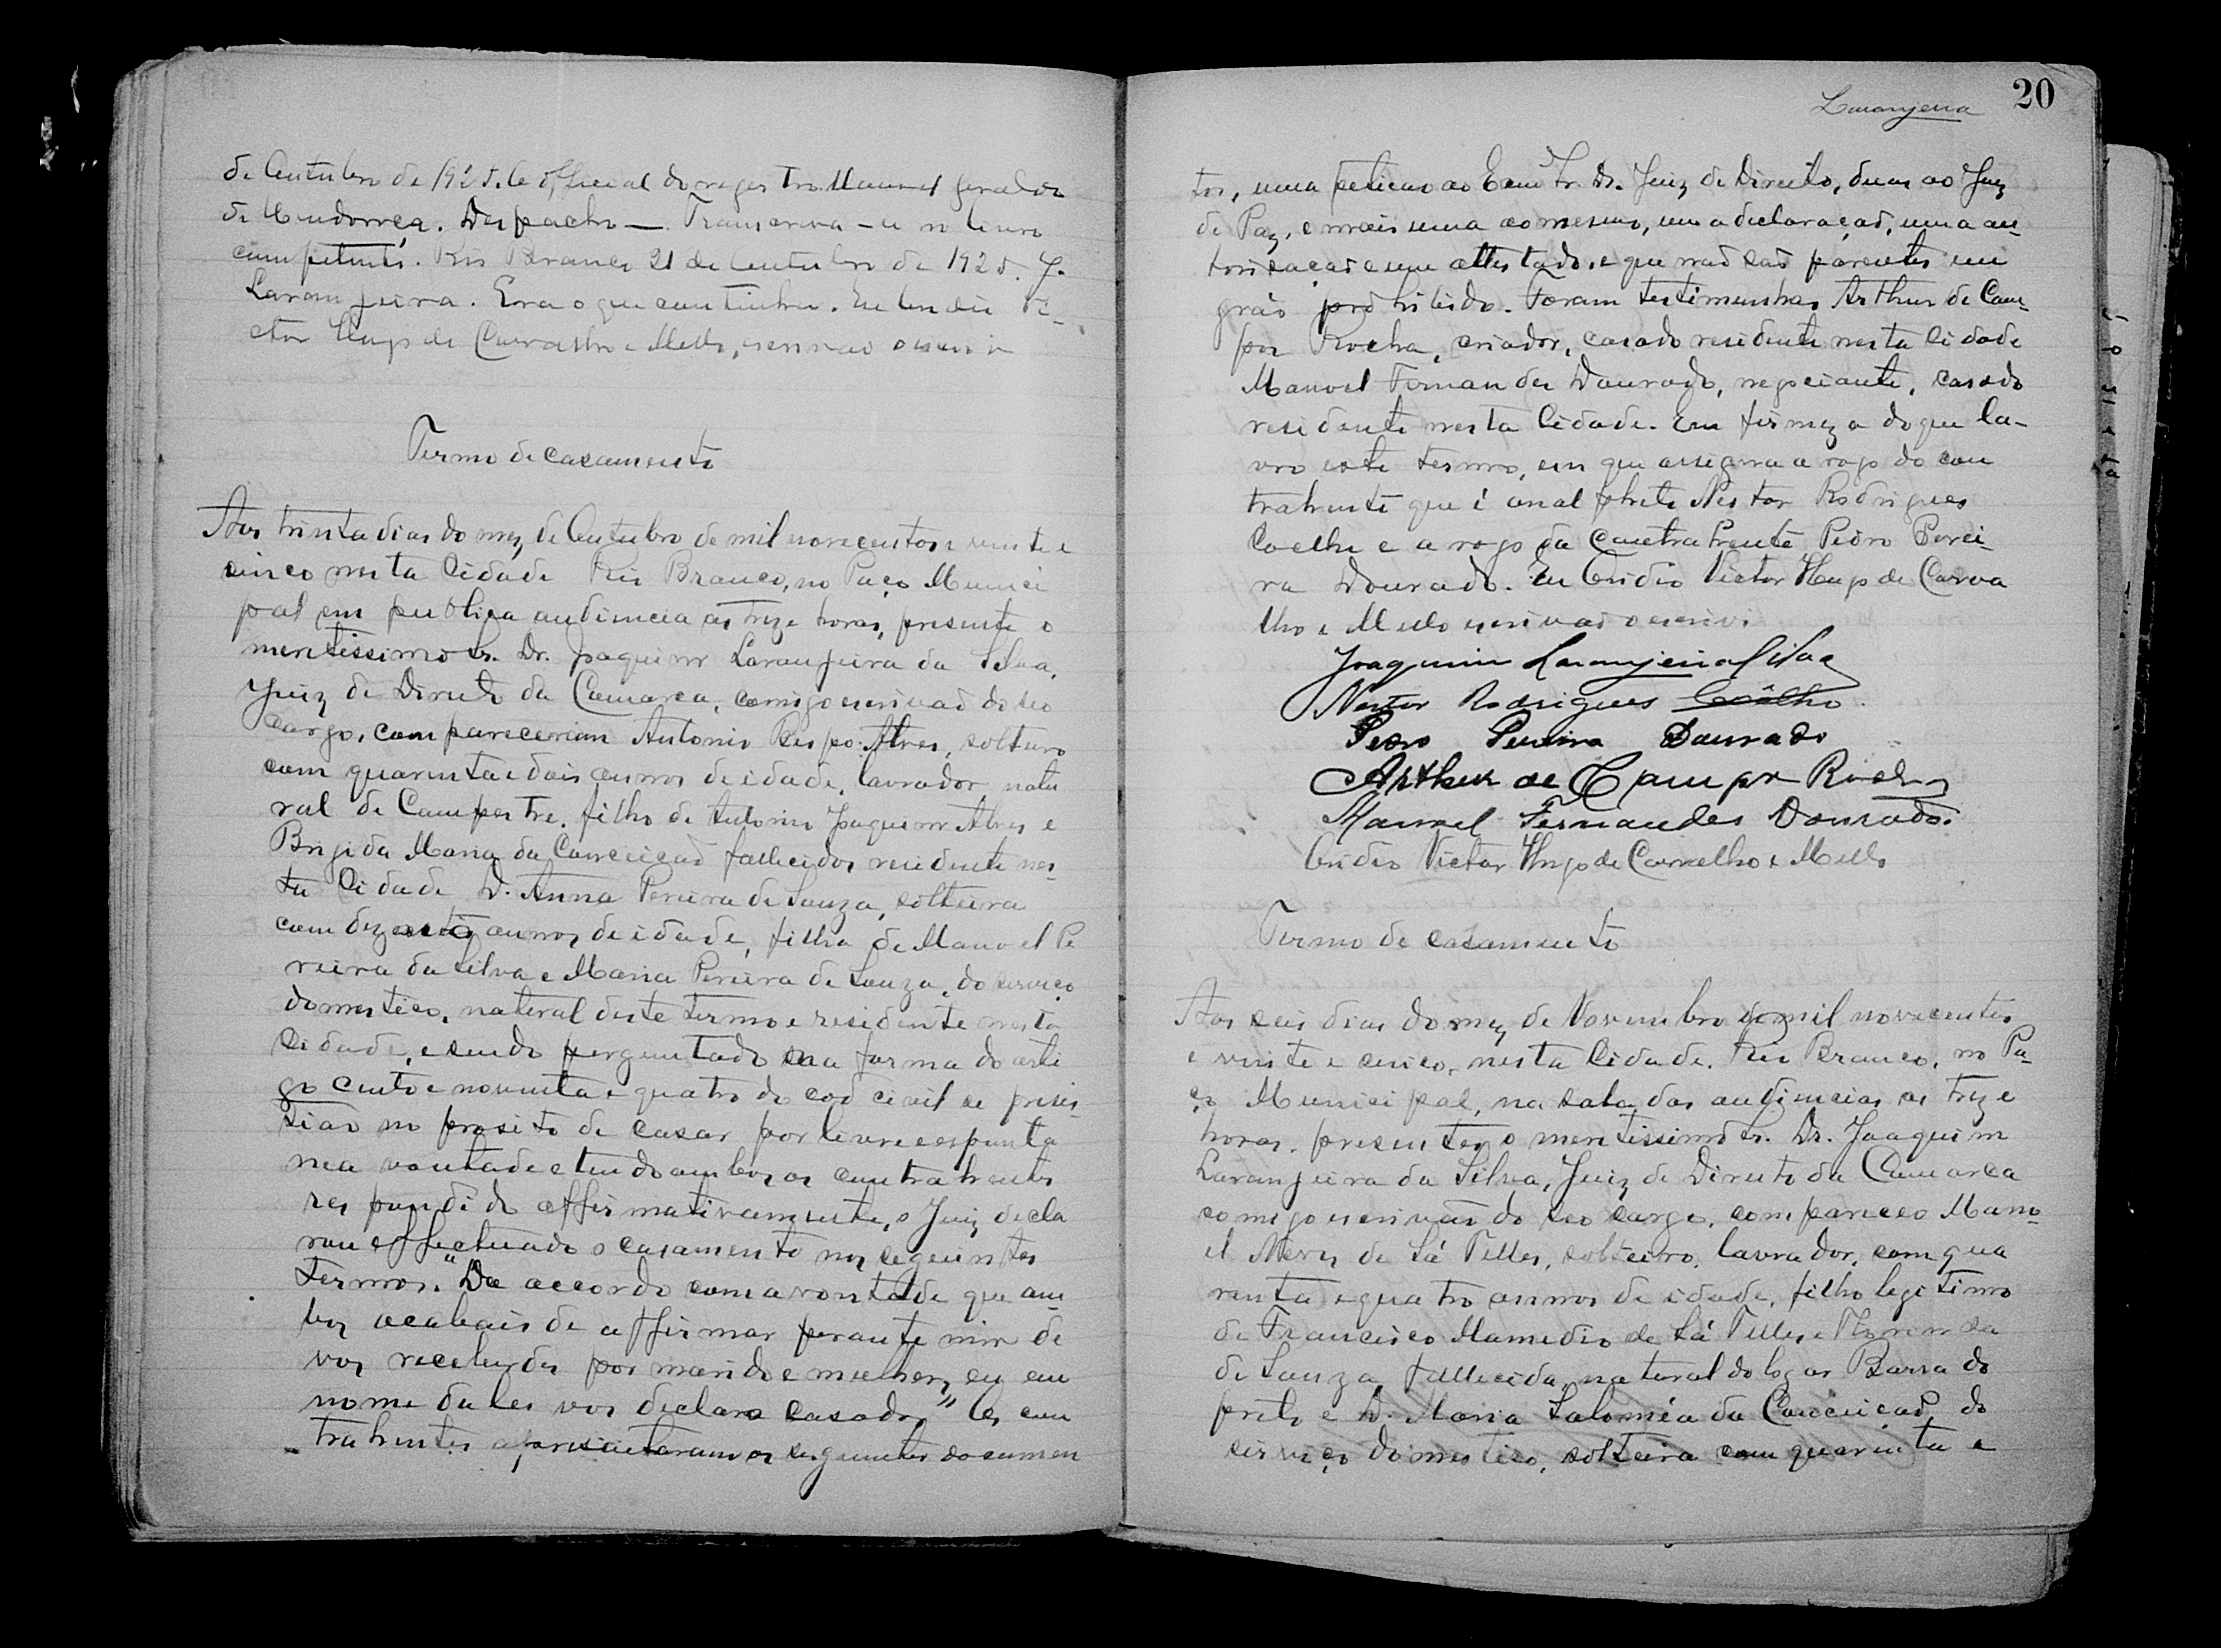 de Outubro de 1925. O official do registro Manoel
de Mendonça. Despacho — Transcreva-se no livro
competente. Rio Branco 21 de Outubro de 1925. J.
Laranjeira. Era o que continha. Eu Ovidio Vi-
ctor Hugo de Carvalho e Mello, escrivao o escrevi
Termo de casamento
Aos trinta dias do mez de Outubro de mil novecentos e vinte e
cinco nesta Cidade Rio Branco, no Paço Munici
pal em publica audiencia as treze horas, presente o
meritissimo Sr. Dr. Joaquim Laranjeira da Silva,
Juiz de Direito da Comarca, comigo escrivaõ do seo
cargo, compareceram Antonio Alves, solteiro
com quarenta e dois annos de idade, lavrador natu
ral de Campestre, filho de Antonio Joaquim Alves e
Brigida Maria da Conceiçaõ fallecidos residente nes-
ta Cidade D. Anna Pereira de Souza, solteira
com annos de idade, filha de Manoel Pe
reira da Silva e Maria Pereira de Souza, do serviço
domestico, natural deste termo e residente nesta
Cidade, e sendo perguntado na forma do arti
go cento e noventa e quatro do cod civil se presis-
tiaõ no prosito de casar por livre e esponta
nea vontade e tendo ambos os contrahentes
respondido affirmativamente, o Juiz decla
rou effectuado o casamento nos seguintes
termos. "De accordo com a vontade que am-
bos acabais de affirmar perante mim de
vos receberdes por marido e mulher, eu em
nome da lei vos declaro casados" Os con
trahentes apresentaram os seguintes documen
Laranjeira
20
tos, uma peticao ao Exmo Sr. Dr. Juiz de Direito, duas ao Juiz
de Paz, e mais uma ao mesmo, uma declaraçaõ, uma au-
torisaçaõ e um attestado, e que naõ saõ parentes em
gráo prohibido. Foram testimunhas Arthur de Cam-
pos Rocha, criador, casado residente nesta Cidade
Manoel Fernandes Dourado, negociante, casado
residente nesta Cidade. Em firmeza do que la-
vro este termo, em que assigna a rogo do con
trahente que é analphbeto Nestor Rodrigues
Coelho e a rogo da Contrahente Pedro Perei-
ra Dourado. Eu Ovidio Victor Hugo de Carva
lho e Mello escrivaõ o escrevi
Joaquim Laranjeira Silva
Nestor Rodrigues Coêlho
Pedro Pereira Dourado
Arthur de Campos Rocha
Manoel Fernandes Dourado.
Ovidio Victor Hugo de Carvalho e Mello
Termo de casamento
Aos seis dias do mez de Novembro de mil novecentos
e vinte e cinco, nesta Cidade, Rio Branco, no Pa-
ço Municipal, na sala das audiencias as treze
horas, presentes o meritissimo Sr. Dr. Joaquim
Laranjeira da Silva, Juiz de Direito da Comarca
comigo escrivão do seo cargo, compareceo Mano-
el Neves de Sá Telles, solteiro, lavrador, com qua
renta e quatro annos de idade, filho legitimo
de Francisco Mamedio de Sá Telles e
de Souza, fallecida, natural do logar Barra do
prito e D. Maria Saloméa da Conceiçaõ, do
serviço domestico, solteira com quarenta e